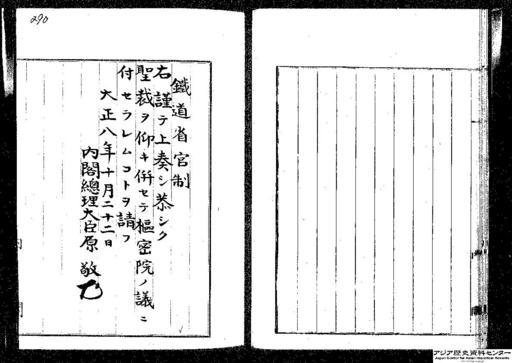 290
鐵道省官制
右謹テ上奏シ恭シク
聖裁ヲ仰キ併セテ樞密院ノ議ニ
付セラレムコトヲ請フ
大正八年十月二十二日
內閣總理大臣原 敬
アジア歴史資料センター
Japan Center for Asian Historical Records